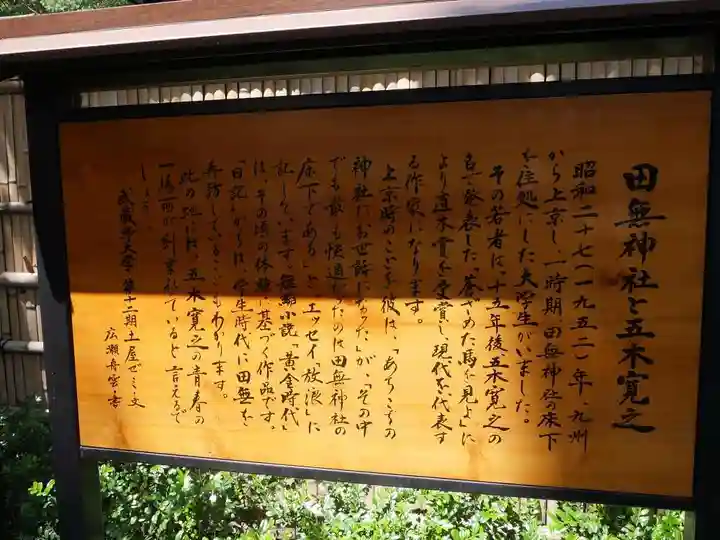 田無神社と五木寛之
昭和二十七(一九五二)年、九州
から上京し、一時期田無神社の床下
を住処にした大学生がいました。
その若者は、十五年後五木寛之の
名で発表した「蒼ざめた馬を見よ」に
より直木賞を受賞し、現代を代表す
る作家になります。
上京時のことを彼は、「あちこちの
神社にお世話になった」が、「その中
でも最も快適だったのは田無神社の
床下である」と、エッセイ「放浪」に
記しています。短編小説「黄金時代」
は、その頃の体験に基づく作品です。
「日記」からは、学生時代に田無を
再訪していることもわかります。
此の地には、五木寛之の青春の
一場面が刻まれていると言えるで
しょう。
武蔵野大学・第十二期土屋ゼミ・文
広瀬舟雲書